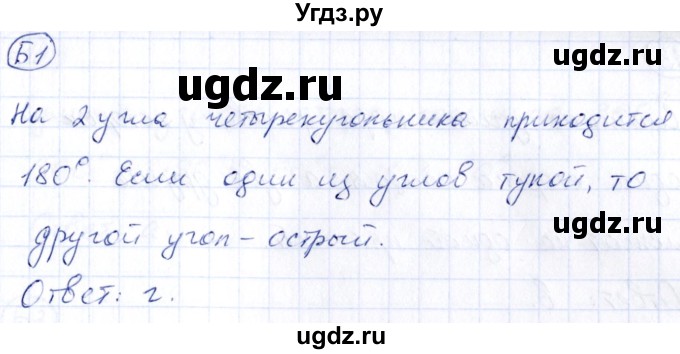 Угдз.ру
Б1
ugdz.ru
ugdz.ru
ugdz.ru
На 2 угла четырехугольника приходится
180°. Если один из углов тупой, то
ugdz.ru
другой угол - острый.
Ответ: г.
ugdz.ru
ugdz.ru